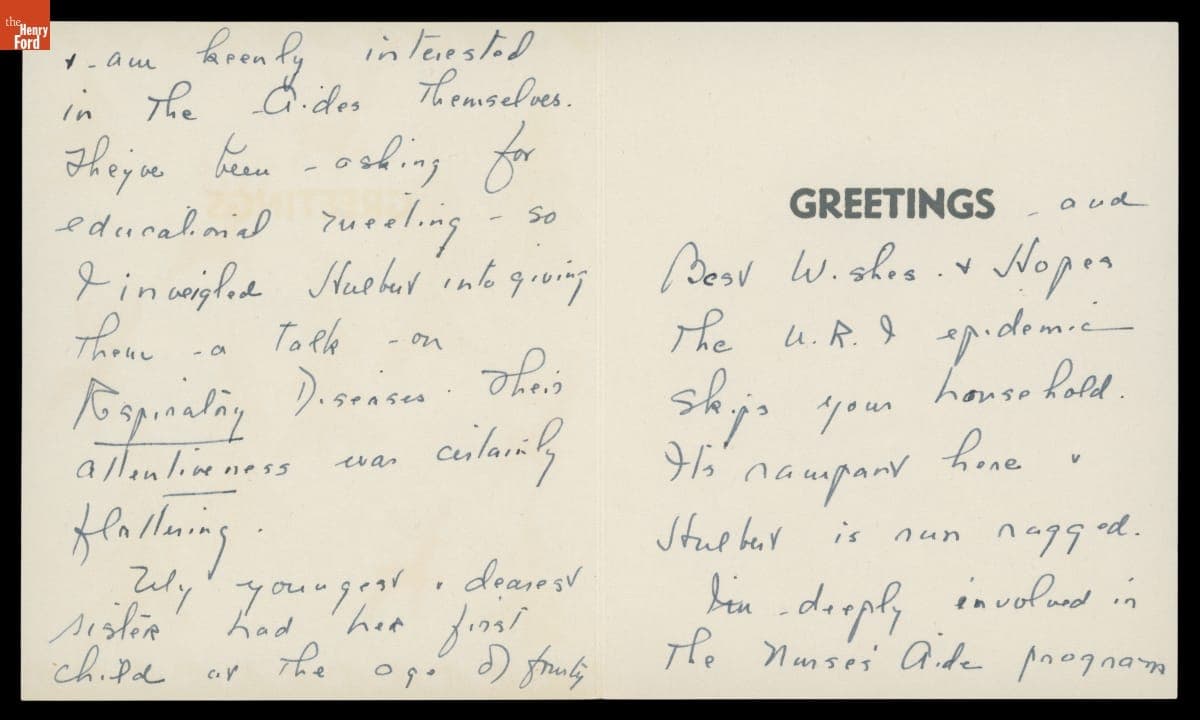 the
Henry
Ford
+ am keenly interested
in the Aides themselves.
They've been - asking for
educational meeting - so
I inveigled Hulbert into giving
them - a talk - on
Respiratory Diseases. Their
attentiveness was certainly
flattering.
My youngest & dearest
sister had her first
child at the age of
GREETINGS - and
Best Wishes. + Hopes
the U.R.I epidemic
skips your household.
It's rampant here +
Hulbert is run ragged.
I'm - deeply involved in
the Nurse's Aide program